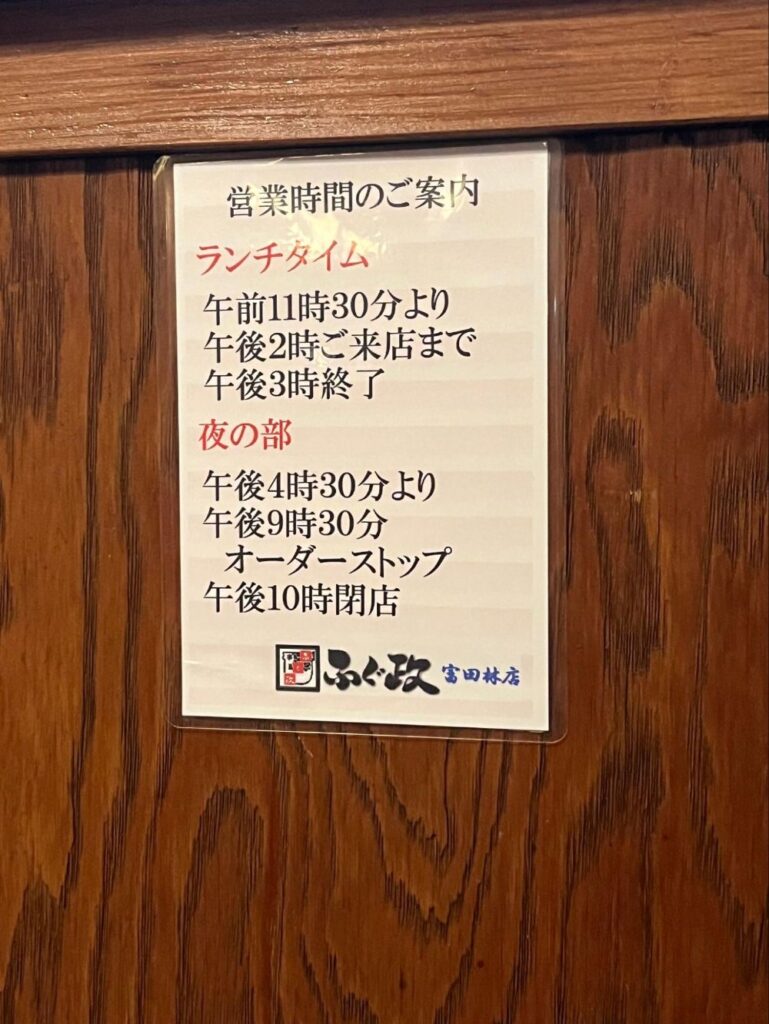 営業時間のご案内
ランチタイム
午前11時30分より
午後2時ご来店まで
午後3時終了
夜の部
午後4時30分より
午後9時30分
オーダーストップ
午後10時閉店
ふぐ政 富田林店